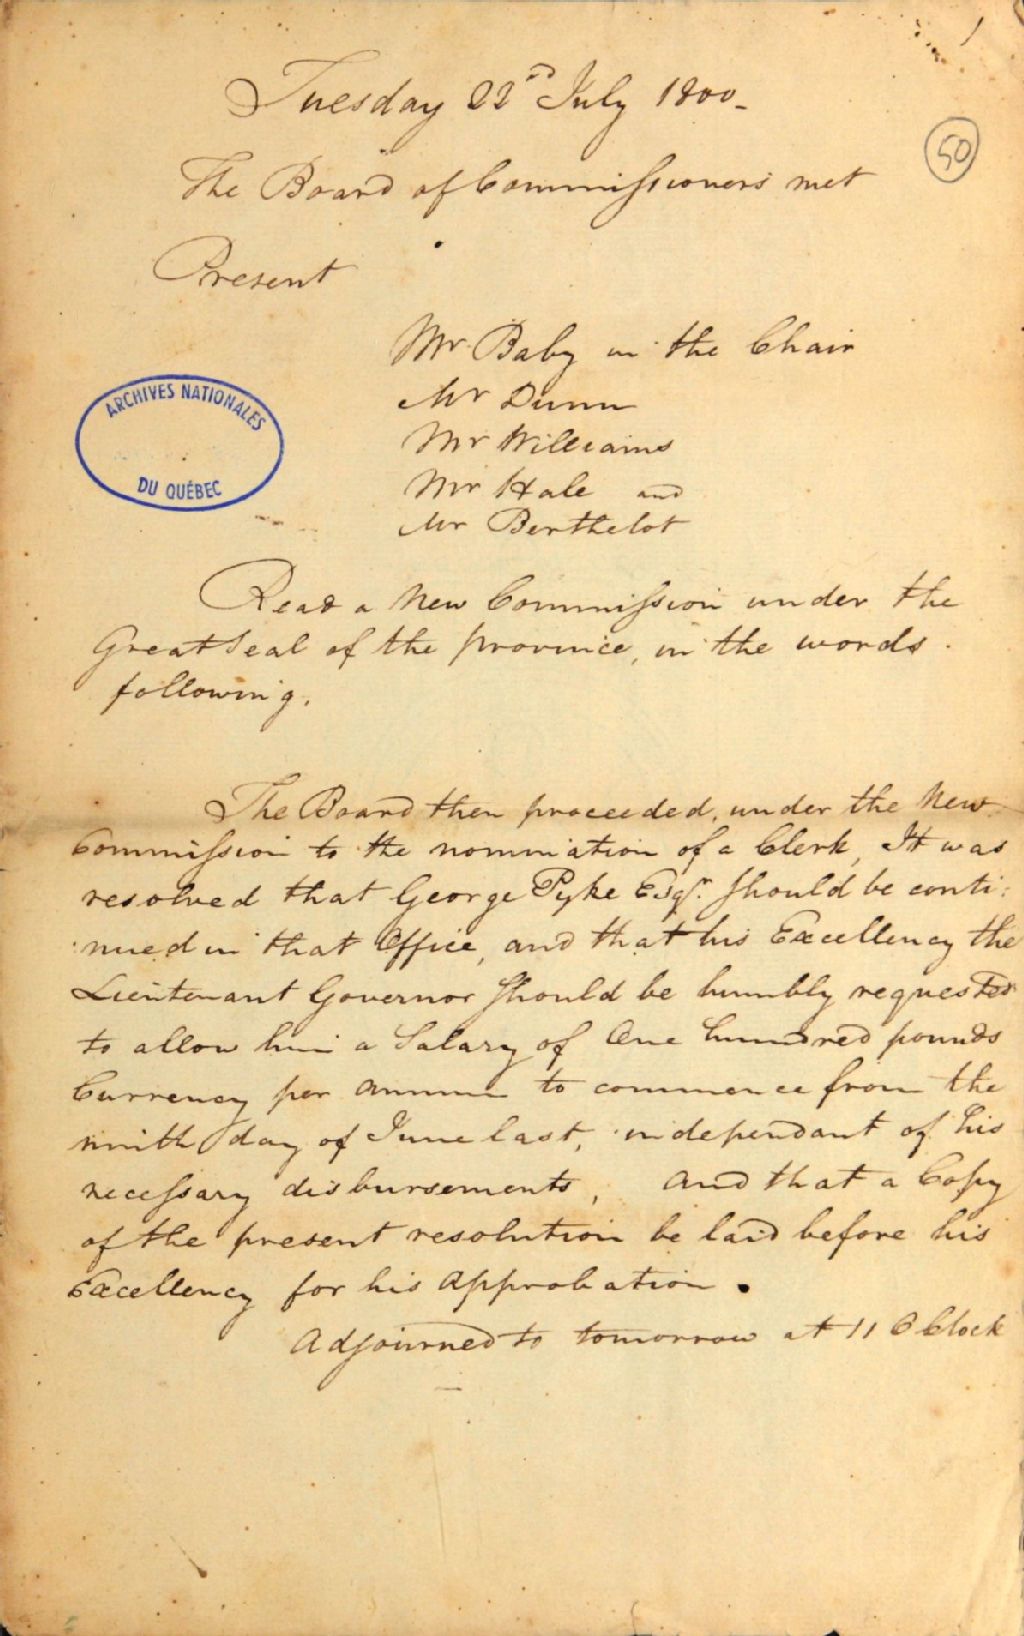 Tuesday 22nd July 1800-
50
The Board of Commissioners met
Present
Mr Baby in the Chair
Mr Dunn
Mr Williams
Mr Hale and
Mr Berthelot
ARCHIVES NATIONALES
DU QUÉBEC
Read a New Commission under the
Great Seal of the province, in the words
following.
The Board then proceeded, under the New
Commission to the nomination of a Clerk, It was
resolved that George Pyke Esqr. should be conti:
nued in that Office, and that his Excellency the
Lieutenant Governor should be humbly requested
to allow him a Salary of One hundred pounds
Currency per annum to commence from the
ninth day of June last, independant of his
necessary disbursements, and that a Copy
of the present resolution be laid before his
Excellency for his approbation.
Adjourned to tomorrow at 11 O Clock